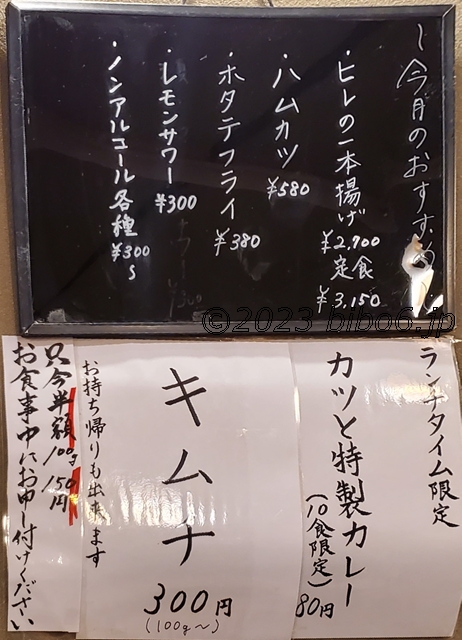 〜今月のおすすめ〜
・ヒレの一本揚げ
¥2,900
定食
¥3,150
・ハムカツ
¥580
・ホタテフライ
¥380
・レモンサワー
¥300
・ノンアルコール各種
¥300
〜
©2023 bibo6.jp
ランチタイム限定
カツと特製カレー
(10食限定)
80円
キムチ
300円
(100g〜)
お持ち帰りも出来ます
只今半額100g150円
お食事中にお申し付けください